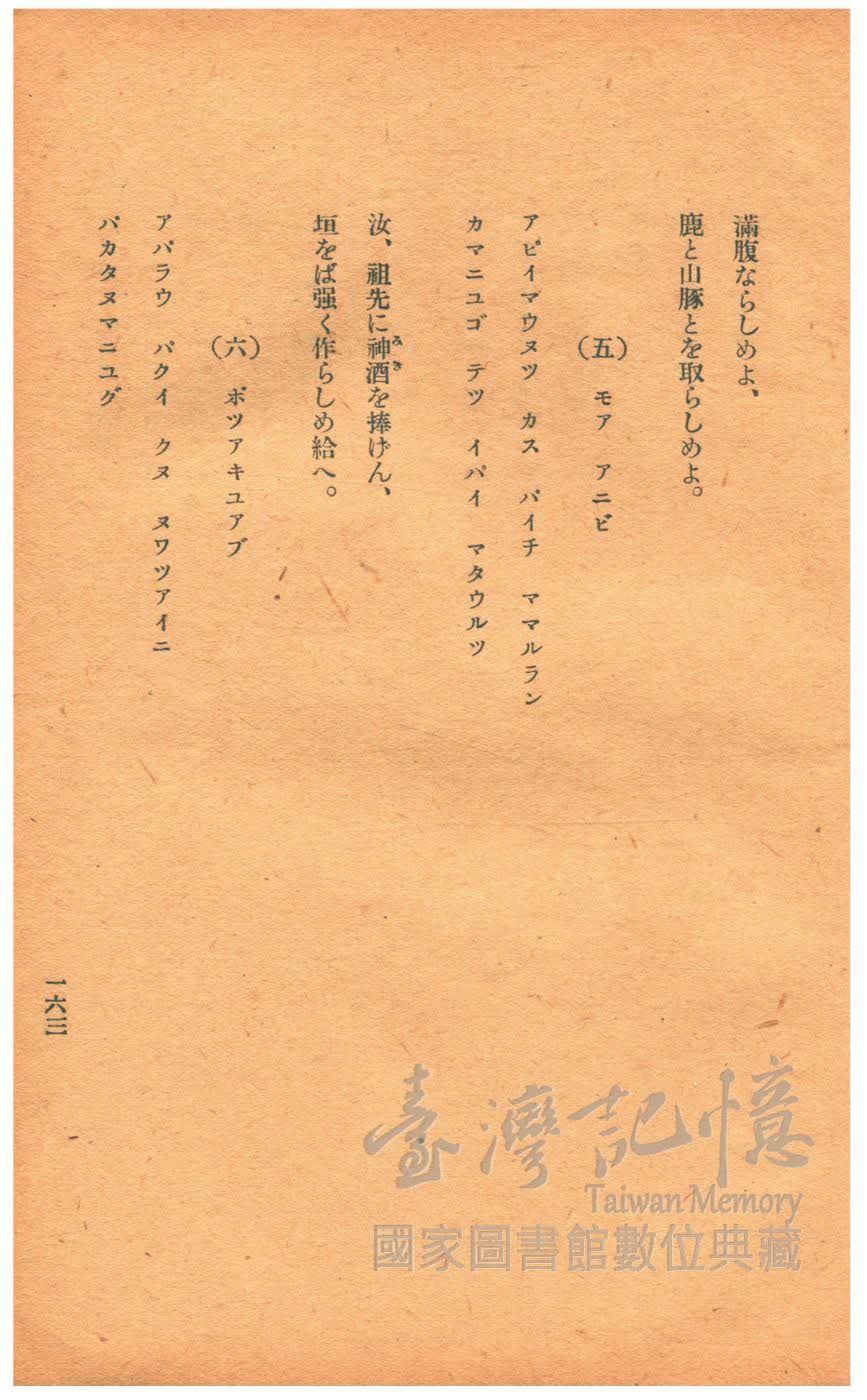 滿腹ならしめよ、
鹿と山豚とを取らしめよ。
(五) モア アニビ
アピイマウヌツ カス パイチ ママルラン
カマニユゴ テツ イパイ マタウルツ
汝、祖先に神酒を捧げん、
みき
垣をば强く作らしめ給へ。
(六) ポツアキユアブ
アパラウ パクイ クヌ ヌワツアイニ
パカタヌマニユグ
一六三
臺灣記憶
Taiwan Memory
國家圖書館數位典藏